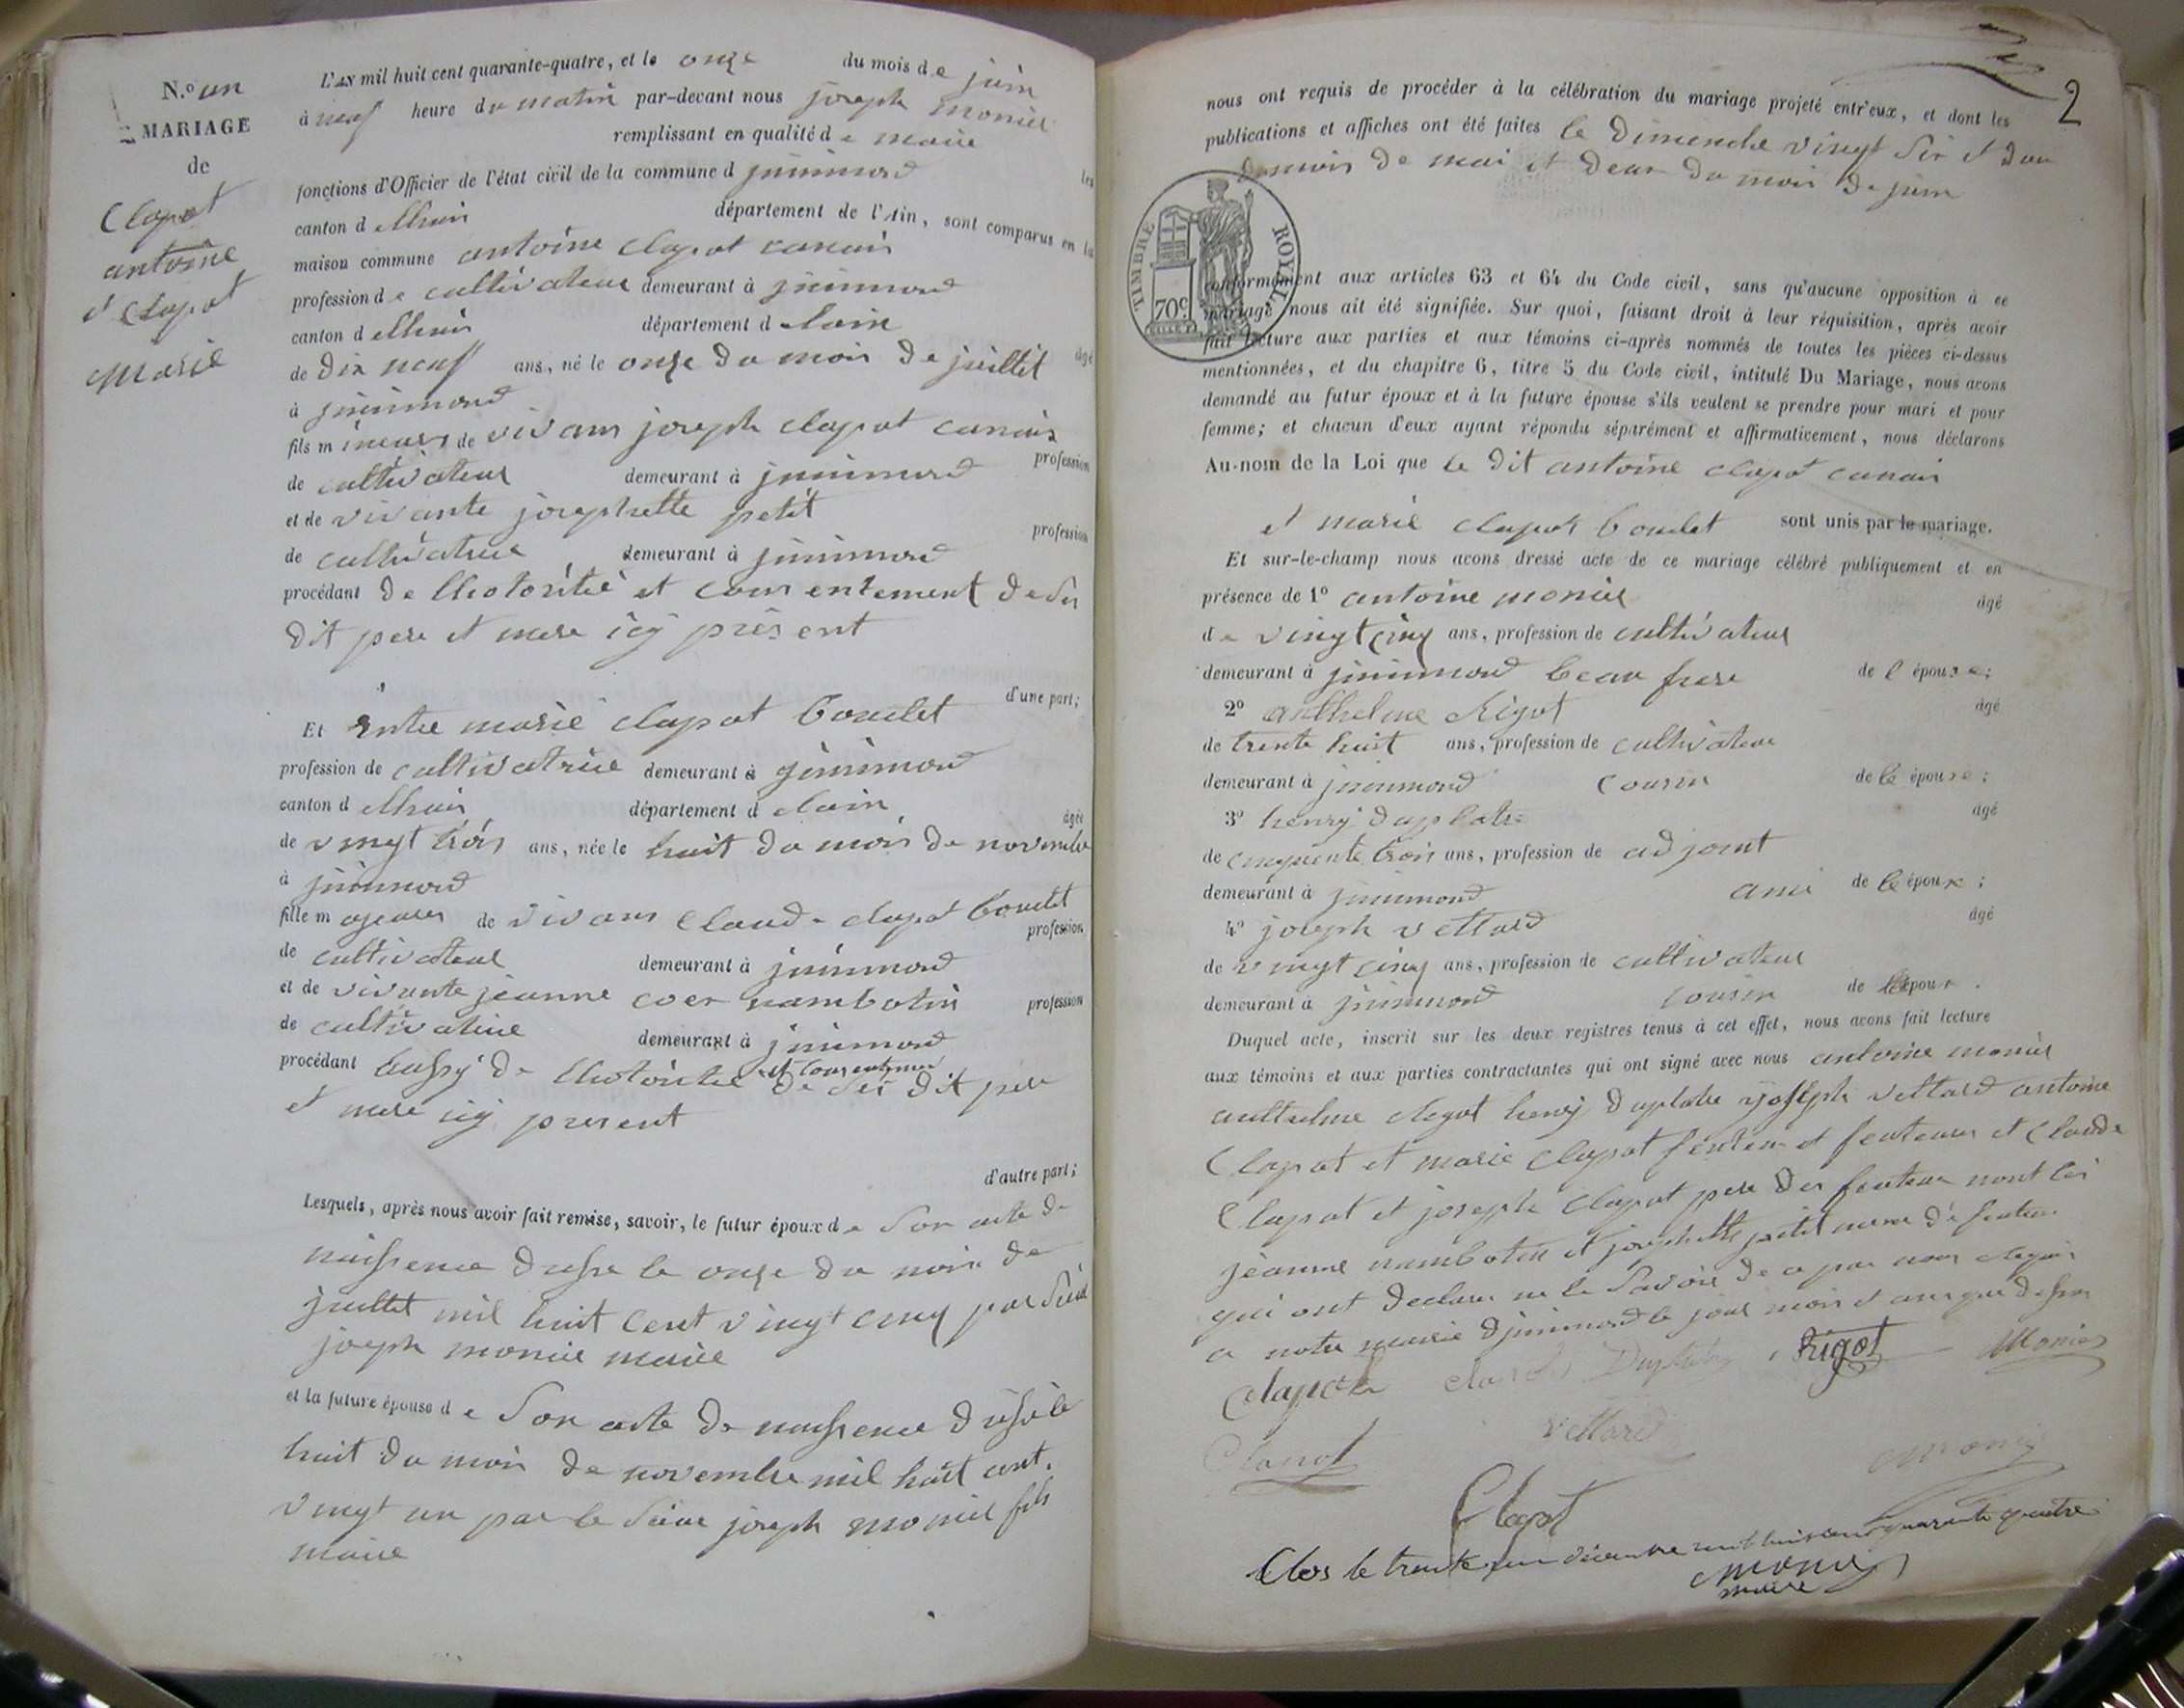 N.º un
MARIAGE
de
Clapot
antoine
et Clapot
marie
L'AN mil huit cent quarante-quatre, et le onze du mois de juin
à neuf heure du matin par-devant nous joseph monier
remplissant en qualité de maire
fonctions d'Officier de l'état civil de la commune d jnimond les
canton d lhuis département de l'Ain, sont comparus en la
maison commune antoine clapot canain
profession de cultivateur demeurant à jnimond
canton d lhuis département d lain
âgé
de dix neuf ans, né le onze du mois de juillit
à jnimond
fils mineur de vivans joseph clapot canain
profession
de cultivateur demeurant à jnimond
et de vivante josephette petit
profession
de cultivatrice demeurant à jnimond
procédant de lhotoritié et consentement de ses
dit pere et mere icy présent
d'une part;
Et entre marie clapot boulet
profession de cultivatrice demeurant à jnimond
canton d lhuis département d lain
âgée
de vingt trois ans, née le huit du mois de novembre
à jnimond
fille majeure de vivans Claude clapot boulet
profession
de cultivateur demeurant à jnimond
et de vivante jeanne coer nambotin profession
de cultivatrice demeurant à jnimond
procédant aussy de lhotoritié et consentement de ses dit pere
et mere icy present
d'autre part;
Lesquels, après nous avoir fait remise, savoir, le futur époux de son acte de
naissence dressé le onze du mois de
juillet mil huit cent vingt cinq par sieur
joseph monier maire
et la future épouse de son acte de naissence dressé le
huit du mois de novembre mil huit cent
vingt un par le sieur joseph monier fils
maire
2
nous ont requis de procéder à la célébration du mariage projeté entr'eux, et dont les
publications et affiches ont été faites le dimenche vingt six
du mois de mai et deux du mois de juin
TIMBRE ROYAL
70 c
conformément aux articles 63 et 64 du Code civil, sans qu'aucune opposition à ce
mariage nous ait été signifiée. Sur quoi, faisant droit à leur réquisition, après avoir
fait lecture aux parties et aux témoins ci-après nommés de toutes les pièces ci-dessus
mentionnées, et du chapitre 6, titre 5 du Code civil, intitulé Du Mariage, nous avons
demandé au futur époux et à la future épouse s'ils veulent se prendre pour mari et pour
femme; et chacun d'eux ayant répondu séparément et affirmativement, nous déclarons
Au nom de la Loi que le dit antoine clapot canain
et marie clapot boulet sont unis par le mariage.
Et sur-le-champ nous avons dressé acte de ce mariage célébré publiquement et en
présence de 1º antoine monier âgé
de vingt cinq ans, profession de cultivateur
demeurant à jnimond beau frere de l épouse;
2º anthelme Rigot âgé
de trente huit ans, profession de cultivateur
demeurant à jnimond cousin de lé épouse;
3º henry duplatre âgé
de cinquente trois ans, profession de adjoint
demeurant à jnimond ami de lé époux;
4º joseph vettard âgé
de vingt cinq ans, profession de cultivateur
demeurant à jnimond cousin de lépoux.
Duquel acte, inscrit sur les deux registres tenus à cet effet, nous avons fait lecture
aux témoins et aux parties contractantes qui ont signé avec nous antoine monier
anthelme Rigot henry duplatre joseph vettard antoine
Clapot et marie clapot et Claude
Clapot et joseph clapot pere des
jeanne nambotin et josephette petit mere
qui ont declaré ne le savoir de ce par nous
a notre mairie djnimond le jour mois et an que dessus
Clapot Clapot Duplatre Rigot Monier
Clapot vettard monier
Clapot
Clos le trente un décembre mil huit cent quarante quatre
monier
maire